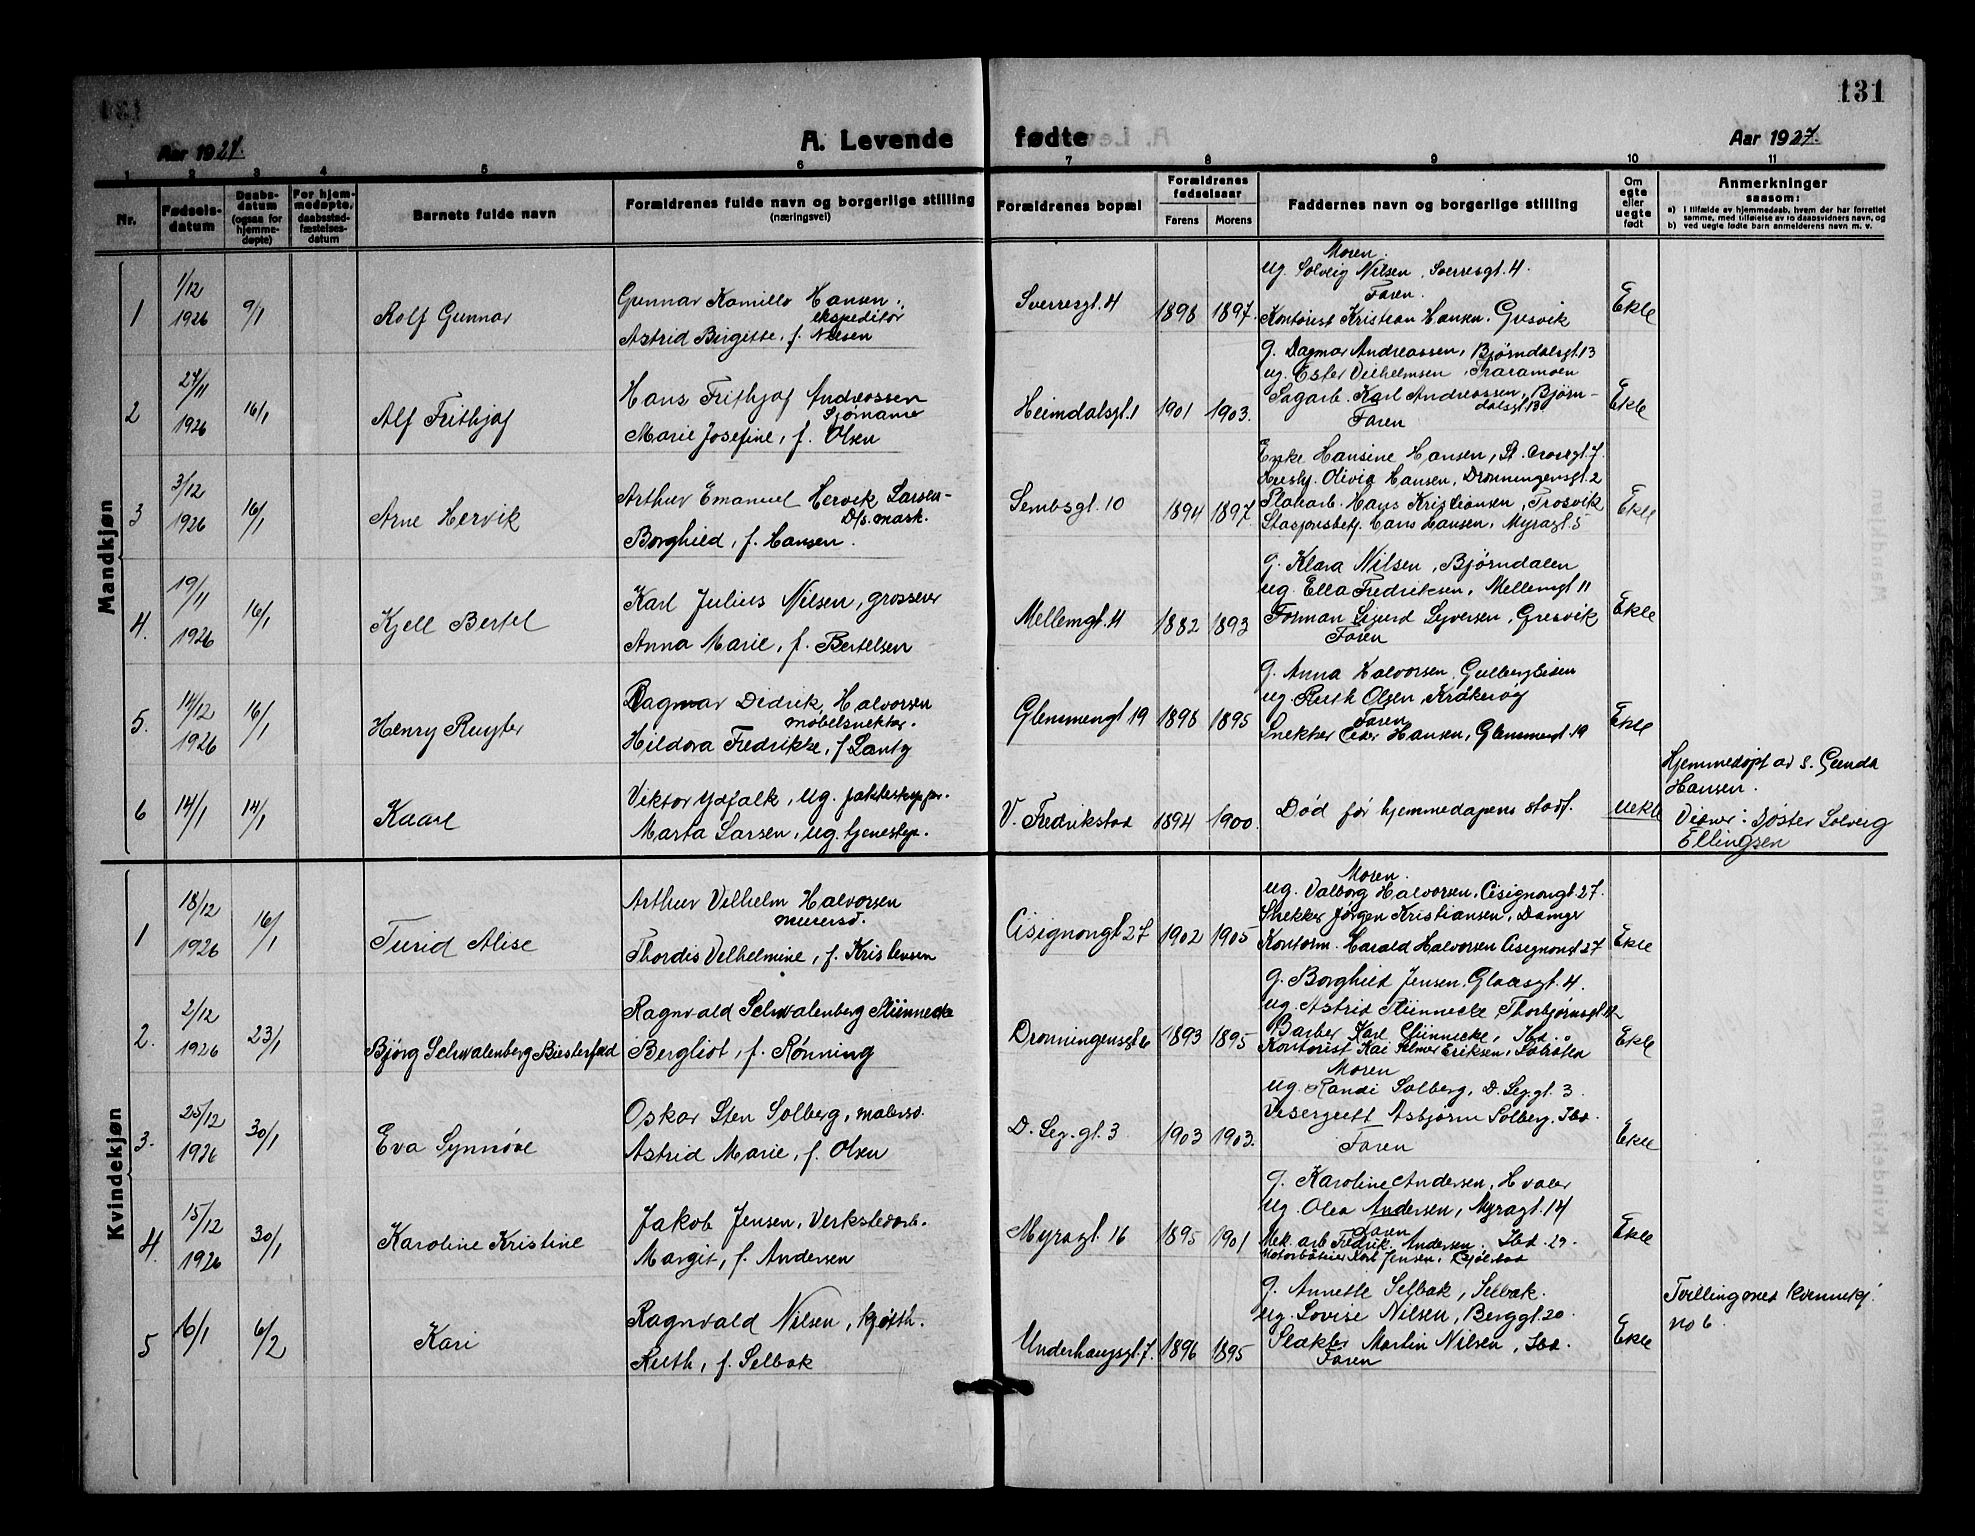 131
Aar 1927.
A. Levende fødte
Aar 1927.
1 2 3 4 5 6 7 8 9 10 11
Nr.
Fødsels-
datum
Daabs-
datum
(ogsaa for
hjemme-
døpte)
For hjem-
medøpte,
daabsstad-
fæstelses-
datum
Barnets fulde navn
Forældrenes fulde navn og borgerlige stilling
(næringsvei)
Forældrenes bopæl
Forældrenes
fødselsaar
Farens Morens
Faddernes navn og borgerlige stilling
Om
egte
eller
uegte
født
Anmerkninger
saasom:
a) i tilfælde av hjemmedaab, hvem der har forrettet
samme, med tilføielse av to daabsvidners navn, og
b) ved uegte fødte barn anmelderens navn m. v.
Mandkjøn
1
1/12
1926
9/1
Rolf Gunnar
Gunnar Kamillo Hansen,
ekspeditør
Astrid Birgitte, f. Nilsen
Sverresgt. 4
1898 1897.
Moren.
Ug. Solveig Nilsen, Sverresgt. 4.
Faren.
Kontorist Kristian Hansen, Gresvik
Ekte
2
27/11
1926
16/1
Alf Frithjof
Hans Frithjof Andreassen
Sjømann
Marie Josefine, f. Olsen
Heimdalsgt. 1
1901 1903.
g. Dagmar Andreassen, Bjørndalsgt 13
ug. Ester Vilhelmsen, Traramoen
Sagarb. Karl Andreassen, Bjørn-
dalsgt 13
Faren
Ekte
3
3/12
1926
16/1
Arne Hervik
Arthur Emanuel Hervik Larsen-
D/s. mask.
Borghild, f. Hansen.
Sembsgt. 10
1894 1897.
Enke Hansine Hansen, St. Crossgt. 7
Hustj. Olivia Hansen, Dronningensgt. 2
Platearb. Hans Kristiansen, Trosvik
Stasjonsbetj. Hans Hansen, Myragt. 5
Ekte
4.
19/11
1926
16/1
Kjell Bertel
Karl Julius Nilsen, grosserer
Anna Marie, f. Bertelsen
Mellemgt. 11
1882 1893
g. Klara Nilsen, Bjørndalen
ug. Ella Fredriksen, Mellemgt 11
Forman Sigurd Syversen, Gresvik
Faren
Ekte
5.
14/12
1926
16/1
Henry Ruyter
Dagmar Didrik Halvorsen
møbelsnekker.
Hildora Fredrikke, f. Lantz
Glemmengt 19
1898 1895
g. Anna Halvorsen, Gulbergleien
ug. Ruth Olsen, Kråkerøy
Faren
Snekker Hansen, Glemmengt. 19
Ekte
6
14/1
14/1
Kaare
Viktor Ydfalk, ug. jakteskipper.
Marta Larsen, ug. tjenestep.
V. Fredrikstad
1894 1900.
Død før hjemmedåpens stadf.
uekte
Hjemmedøpt av s. Gunda
Hansen.
Vidner: Søster Solveig
Ellingsen
Kvindekjøn
1
18/12
1926
16/1
Turid Alise
Arthur Vilhelm Halvorsen
murersv.
Thordis Velhelmine, f. Kristensen
Cisignongt 27
1902 1905
Moren.
ug. Valborg Halvorsen, Cisignongt 27.
Snekker Jørgen Kristiansen, Damyr
Kontorm. Harald Halvorsen Cisignongt 27
Ekte
2.
2/12
1926
23/1
Bjørg Schwalenberg Biesterfeld
Ragnvald Schwalenberg Stünnecke
Bergliot, f. Rønning
Dronningensgt 6
1893 1895
g. Borghild Jensen, Glaasgt. 4.
ug. Astrid Stünnecke, Thorbjørnsgt 12
Barber Karl Stünnecke, Ibd.
Kontorist Kai Eriksen,
Ekte
3.
25/12
1926
30/1
Eva Synnøve
Oskar Sten Solberg, malersv.
Astrid Marie, f. Olsen
D. Seg. gt. 3
1903 1903.
Moren
ug. Randi Solberg, D. Seg. gt. 3
Visergutt Asbjørn Solberg, Ibd.
Faren
Ekte
4.
15/12
1926
30/1
Karoline Kristine
Jakob Jensen, Verkstedarb.
Margit, f. Andersen
Myragt 16
1895 1901
g. Karoline Andersen, Hvaler
ug. Olea Andersen, Myragt. 14
Faren
Mek. arb Fredrik Andersen, Ibd. 29.
Jensen,
Ekte
5
6/1
6/2
Kari
Ragnvald Nilsen, kjøtth.
Ruth, f. Selbak
Underhaugsgt. 7.
1896 1895
g. Annette Selbak, Selbak.
ug. Lovise Nilsen, Berggt. 20
Slakter Martin Nilsen, Ibd.
Faren
Ekte
Tvilling med kvinnekj.
no 6.